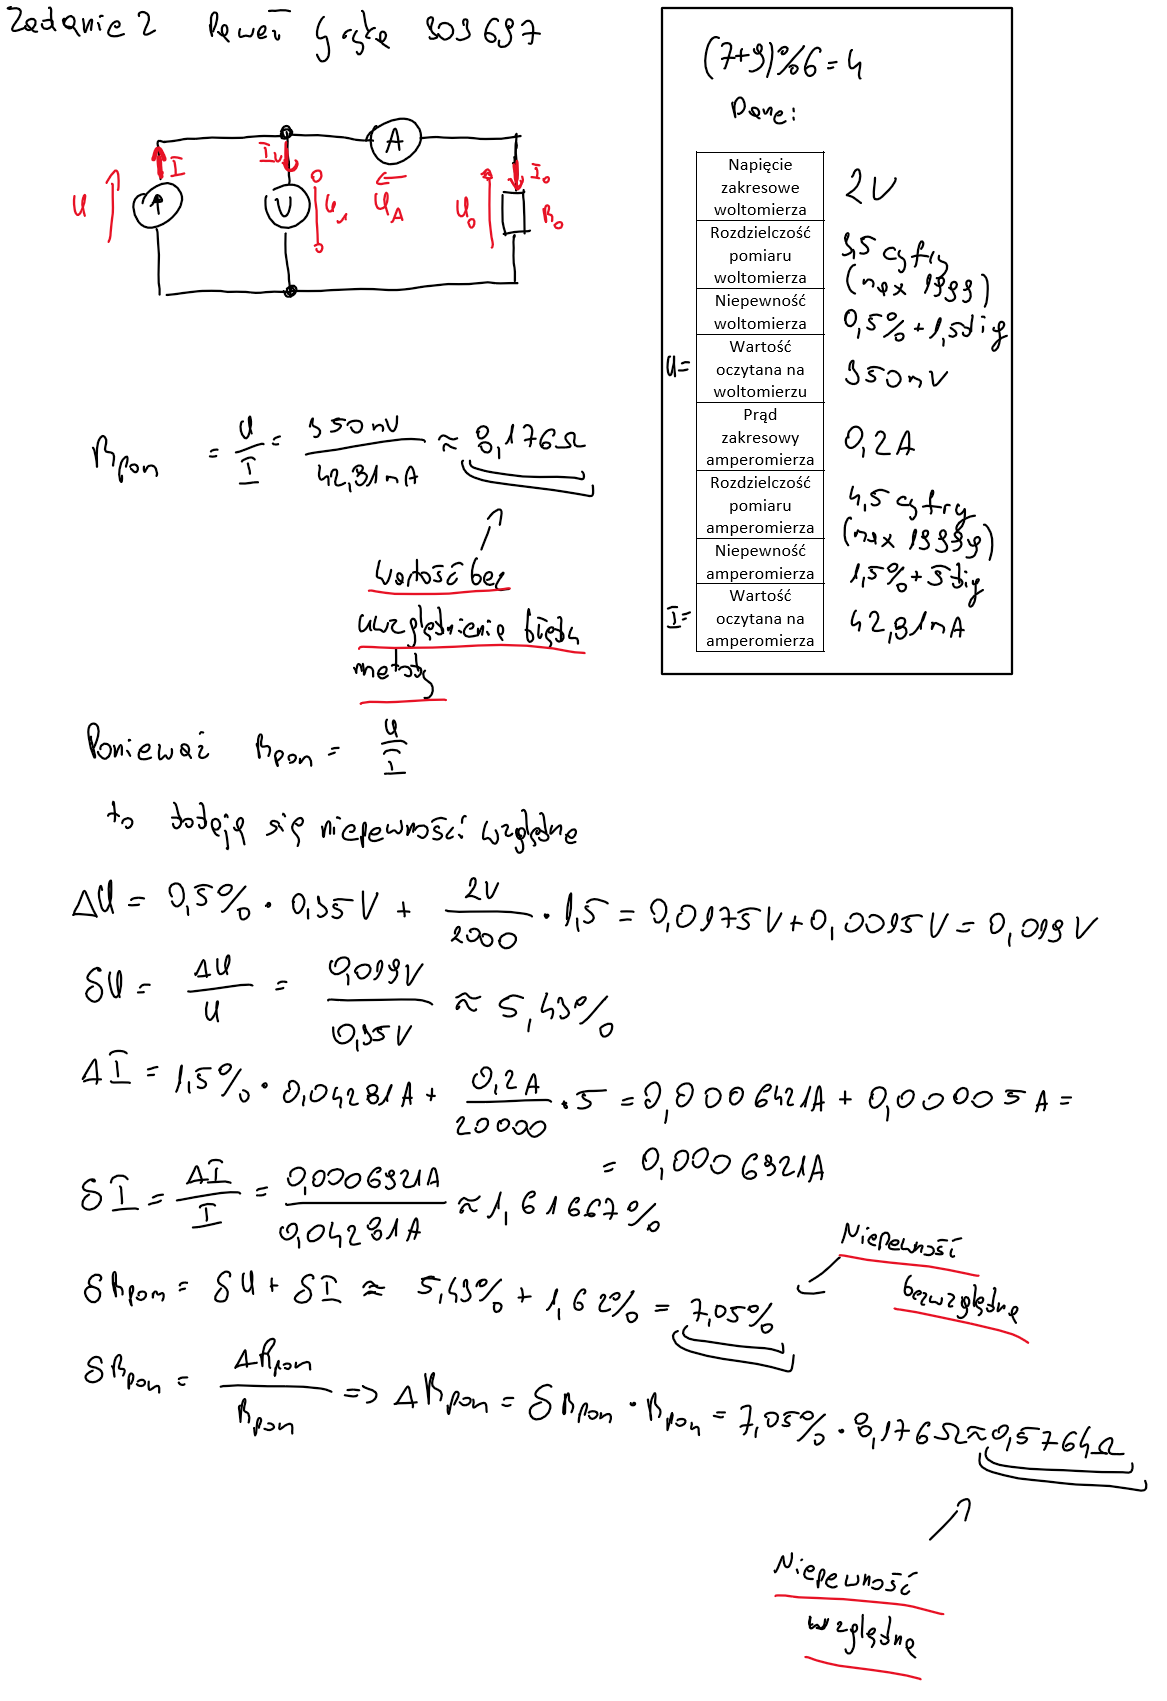 Zadanie 2 Paweł 303697
(7+9)%6=4
Dane:
Napięcie
zakresowe
woltomierza
2V
Rozdzielczość
pomiaru
woltomierza
3,5 cyfry
(max 1999)
Niepewność
woltomierza
0,5% + 1,5dig
U=
Wartość
oczytana na
woltomierzu
350mV
Prąd
zakresowy
amperomierza
0,2A
Rozdzielczość
pomiaru
amperomierza
4,5 cyfry
(max 19999)
Niepewność
amperomierza
1,5% + 5dig
I=
Wartość
oczytana na
amperomierza
42,81mA
A
I
Iv
I₀
U
V
U_A
U₀
R₀
Rpom = U/I = 350mV/42,81mA ≈ 8,176Ω
Wartość bez
uwzględnienia błędu
metody
Ponieważ Rpom = U/I
to dodają się niepewności względne
ΔU = 0,5% · 0,35V + 2V/2000 · 1,5 = 0,0175V + 0,0015V = 0,019V
δU = ΔU/U = 0,019V/0,35V ≈ 5,43%
ΔI = 1,5% · 0,04281A + 0,2A/20000 · 5 = 0,0006421A + 0,00005A =
= 0,0006921A
δI = ΔI/I = 0,0006921A/0,04281A ≈ 1,61667%
δRpom = δU + δI ≈ 5,43% + 1,62% = 7,05%
Niepewność
bezwzględna
δRpom = ΔRpom/Rpom => ΔRpom = δRpom · Rpom = 7,05% · 8,176Ω ≈ 0,5764Ω
Niepewność
względna